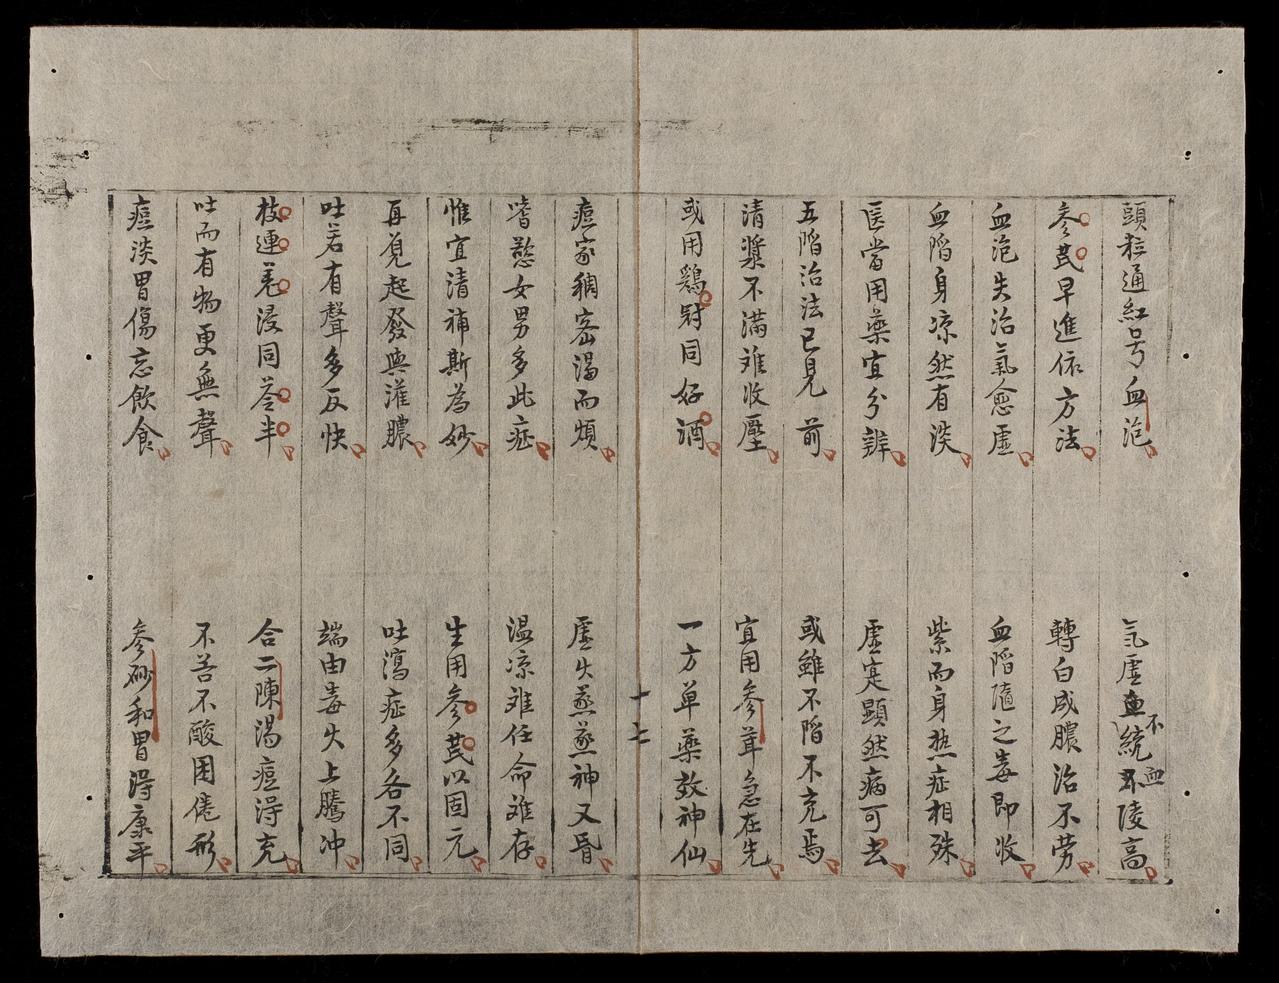 頭粒通紅号血泡
氣虛不統血陵高
參芪早進依方法
轉白成膿治不勞
血泡失治氣愈虛
血陷隨之毒即收
血陷身凉然有淡
紫而身热症相殊
医當用藥宜分辨
虛寔顕然病可去
五陷治法已見前
或雖不陷不充焉
清漿不滿难收壓
宜用參茸急在先
或用鷄冠同好酒
一方单藥效神仙
十七
痘家稠密渴而煩
虛火蒸蒸神又昏
嗜慾女男多此症
温凉难任命难存
惟宜清補斯為妙
生用參芪以固元
再覓起發與灌膿
吐瀉症多各不同
吐若有聲多反快
端由毒火上騰冲
枝連羌浸同苓半
合二陳湯痘淂充
吐而有物更無聲
不苦不酸困倦形
痘淡胃傷忘飲食
參砂和胃淂康平